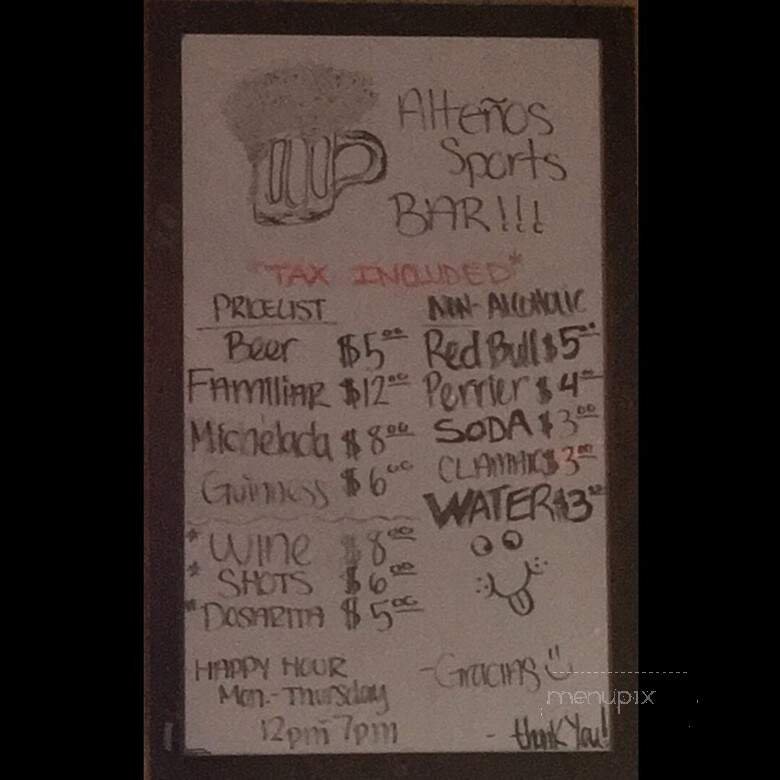 Alteños
Sports
BAR!!!
"TAX INCLUDED"
PRICELIST
Beer $5.00
FAMILIAR $12.00
Michelada $8.00
Guinness $6.00
*WINE $8.00
*SHOTS $6.00
*DOSARITA $5.00
NON-ALCOHOLIC
Red Bull $5.00
Perrier $4.00
SODA $3.00
CLAMATO $3.00
WATER $3.00
HAPPY HOUR
Mon.-Thursday
12pm-7pm
-Gracias
- thank You!
menupix